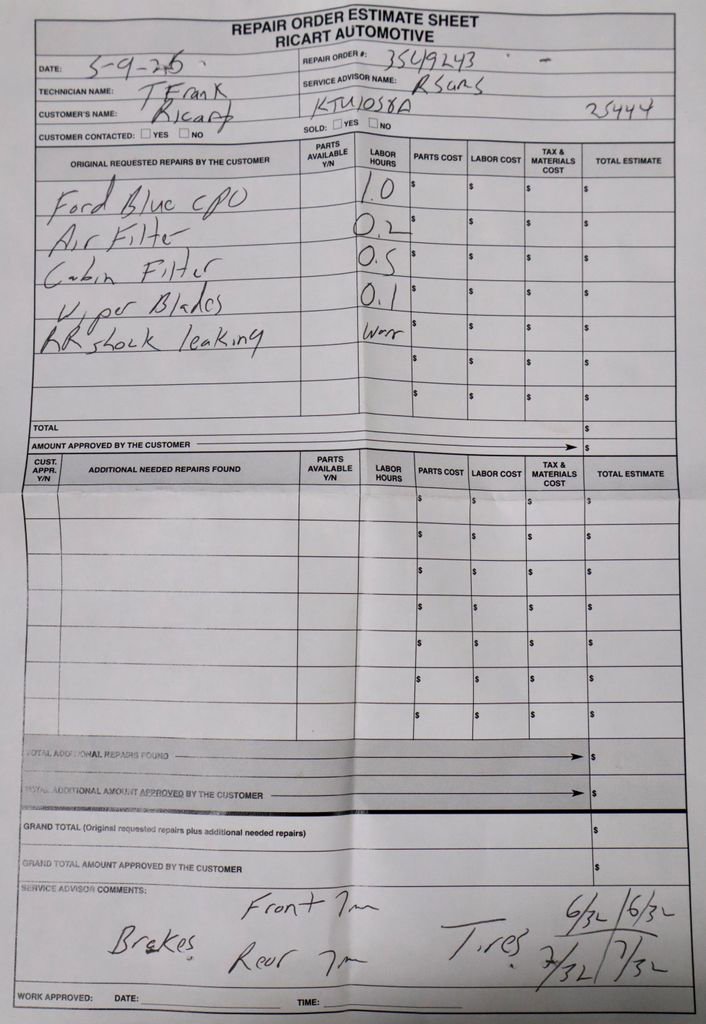 REPAIR ORDER ESTIMATE SHEET
RICART AUTOMOTIVE
DATE: 5-9-26
REPAIR ORDER #: 3549243 -
TECHNICIAN NAME: T Frank
SERVICE ADVISOR NAME:
CUSTOMER'S NAME: Ricart
KTU1058A 25444
CUSTOMER CONTACTED: YES NO
SOLD: YES NO
ORIGINAL REQUESTED REPAIRS BY THE CUSTOMER PARTS AVAILABLE Y/N LABOR HOURS PARTS COST LABOR COST TAX & MATERIALS COST TOTAL ESTIMATE
Ford Blue CPO 1.0 $ $ $ $
Air Filter 0.2 $ $ $ $
Cabin Filter 0.5 $ $ $ $
Wiper Blades 0.1 $ $ $ $
RR shock leaking Warr $ $ $ $
$ $ $ $
$ $ $ $
TOTAL $
AMOUNT APPROVED BY THE CUSTOMER $
CUST. APPR. Y/N ADDITIONAL NEEDED REPAIRS FOUND PARTS AVAILABLE Y/N LABOR HOURS PARTS COST LABOR COST TAX & MATERIALS COST TOTAL ESTIMATE
$ $ $ $
$ $ $ $
$ $ $ $
$ $ $ $
$ $ $ $
$ $ $ $
$ $ $ $
TOTAL ADDITIONAL REPAIRS FOUND $
TOTAL ADDITIONAL AMOUNT APPROVED BY THE CUSTOMER $
GRAND TOTAL (Original requested repairs plus additional needed repairs) $
GRAND TOTAL AMOUNT APPROVED BY THE CUSTOMER $
SERVICE ADVISOR COMMENTS:
Front 7m
6/32 6/32
Brakes Tires
Rear 7m
7/32 7/32
WORK APPROVED: DATE: TIME: